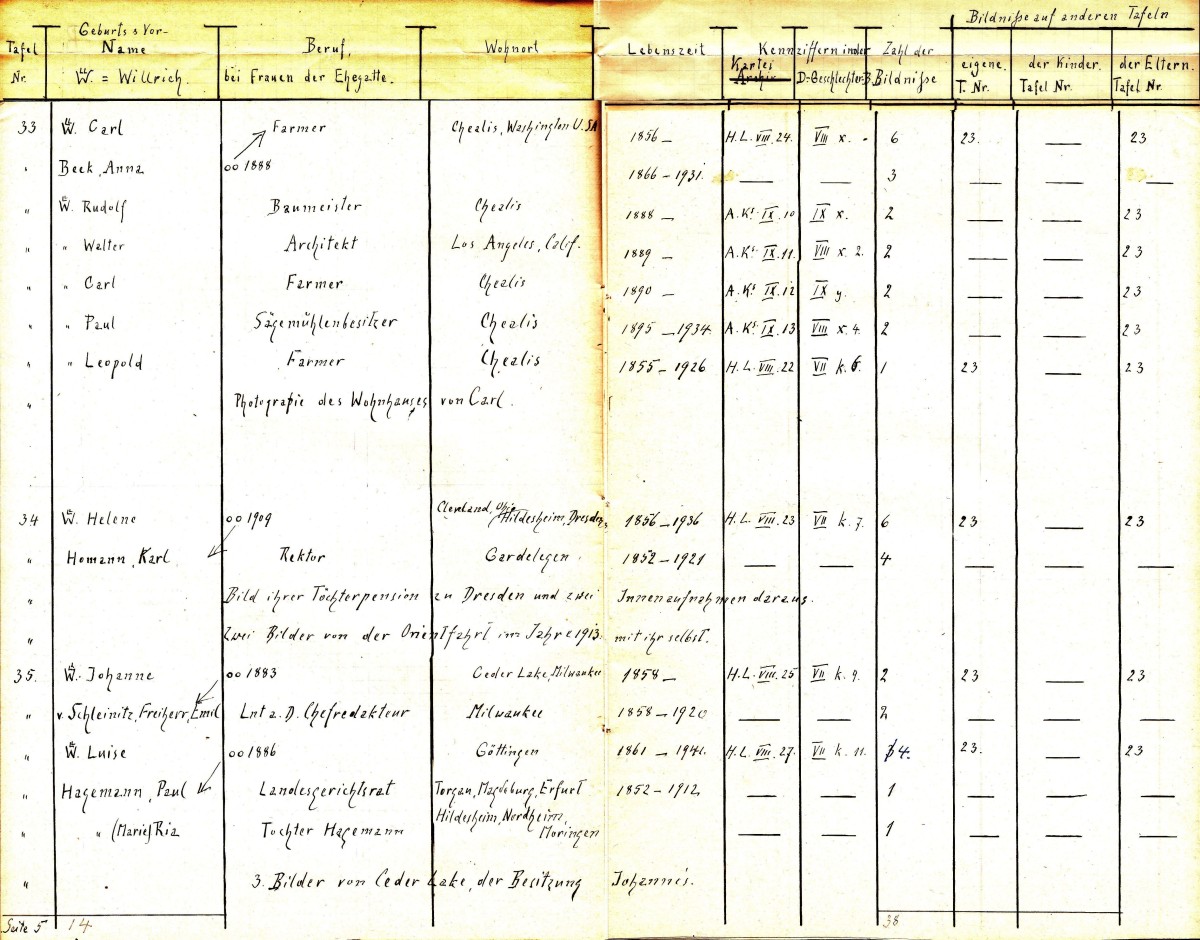 Bildniße auf anderen Tafeln
Tafel Nr. Geburts u Vor-Name W. = Willrich. Beruf, bei Frauen der Ehegatte. Wohnort Lebenszeit Kennziffern in der Kartei Archiv D-Geschlechter-B. Zahl der Bildniße eigene. T. Nr. der Kinder. Tafel Nr. der Eltern. Tafel Nr.
33 W. Carl Farmer Chealis, Washington U.SA 1856 — H.L. VIII. 24. VIII x. - 6 23. — 23
" Beck, Anna oo 1888 1866 – 1931. — — 3 — — —
" W. Rudolf Baumeister Chealis 1888 — A.K! IX. 10 IX x. 2 — — 23
" " Walter Architekt Los Angeles, Calif. 1889 — A.K! IX. 11. VIII x. 2. 2 — — 23
" " Carl Farmer Chealis 1890 — A.K! IX. 12 IX y. 2 — — 23
" " Paul Sägemühlenbesitzer Chealis 1895 – 1934. A.K! IX. 13 VIII x. 4. 2 — — 23
" " Leopold Farmer Chealis 1855 – 1926 H.L. VIII. 22 VII k. 6. 1 23 — 23
" Photograpie des Wohnhauses von Carl.
34 W. Helene oo 1909 Cleveland, Ohio, Hildesheim, Dresden, 1856 – 1936 H.L. VIII. 23 VII k. 7. 6 23 — 23
" Homann, Karl Rektor Gardelegen. 1852 – 1921 — — 4 — — —
" Bild ihrer Töchterpension zu Dresden und zwei Innenaufnahmen daraus.
" Zwei Bilder von der Orientfahrt im Jahre 1913. mit ihr selbst.
35. W. Johanne oo 1883 Ceder Lake, Milwaukee 1858 — H.L. VIII. 25 VII k. 9. 2 23 — 23
" v. Schleinitz, Freiherr, Emil Lnt a. D. Chefredakteur Milwaukee 1858 – 1920 — — 2 — — —
" W. Luise oo 1886 Göttingen 1861 – 1941. H.L. VIII. 27. VII k. 11. 4. 23. — 23
" Hagemann, Paul Landesgerichtsrat Torgau, Magdeburg, Erfurt 1852 – 1912, — — 1 — — —
" " (Marie) Ria Tochter Hagemann Hildesheim, Nordheim, Moringen — — 1 — — —
" 3. Bilder von Ceder Lake, der Besitzung Johannes.
Seite 5 14 38